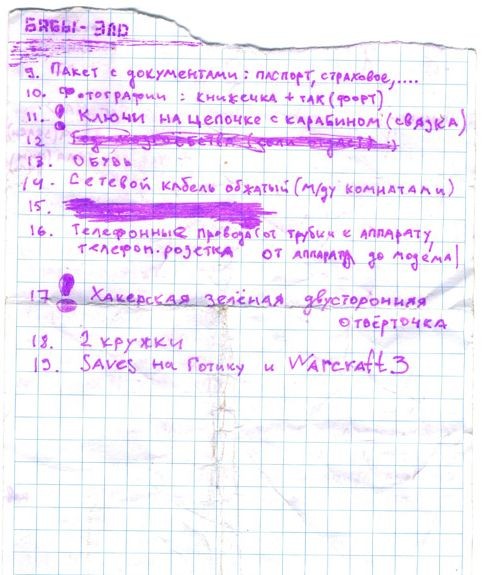 БЯБЫ-ЗЛО
9. Пакет с документами: паспорт, страховое,....
10. Фотографии: книжечка + так (форт)
11. ! Ключи на цепочке с карабином (связка)
12
13. Обувь
14. Сетевой кабель обжатый (м/ду комнатами)
15.
16. Телефонные провода (от трубки к аппарату,
телефон. розетка от аппарата до модема)
17. ! Хакерская зелёная двусторонняя
отвёрточка
18. 2 кружки
19. Saves на Готику и Warcraft 3